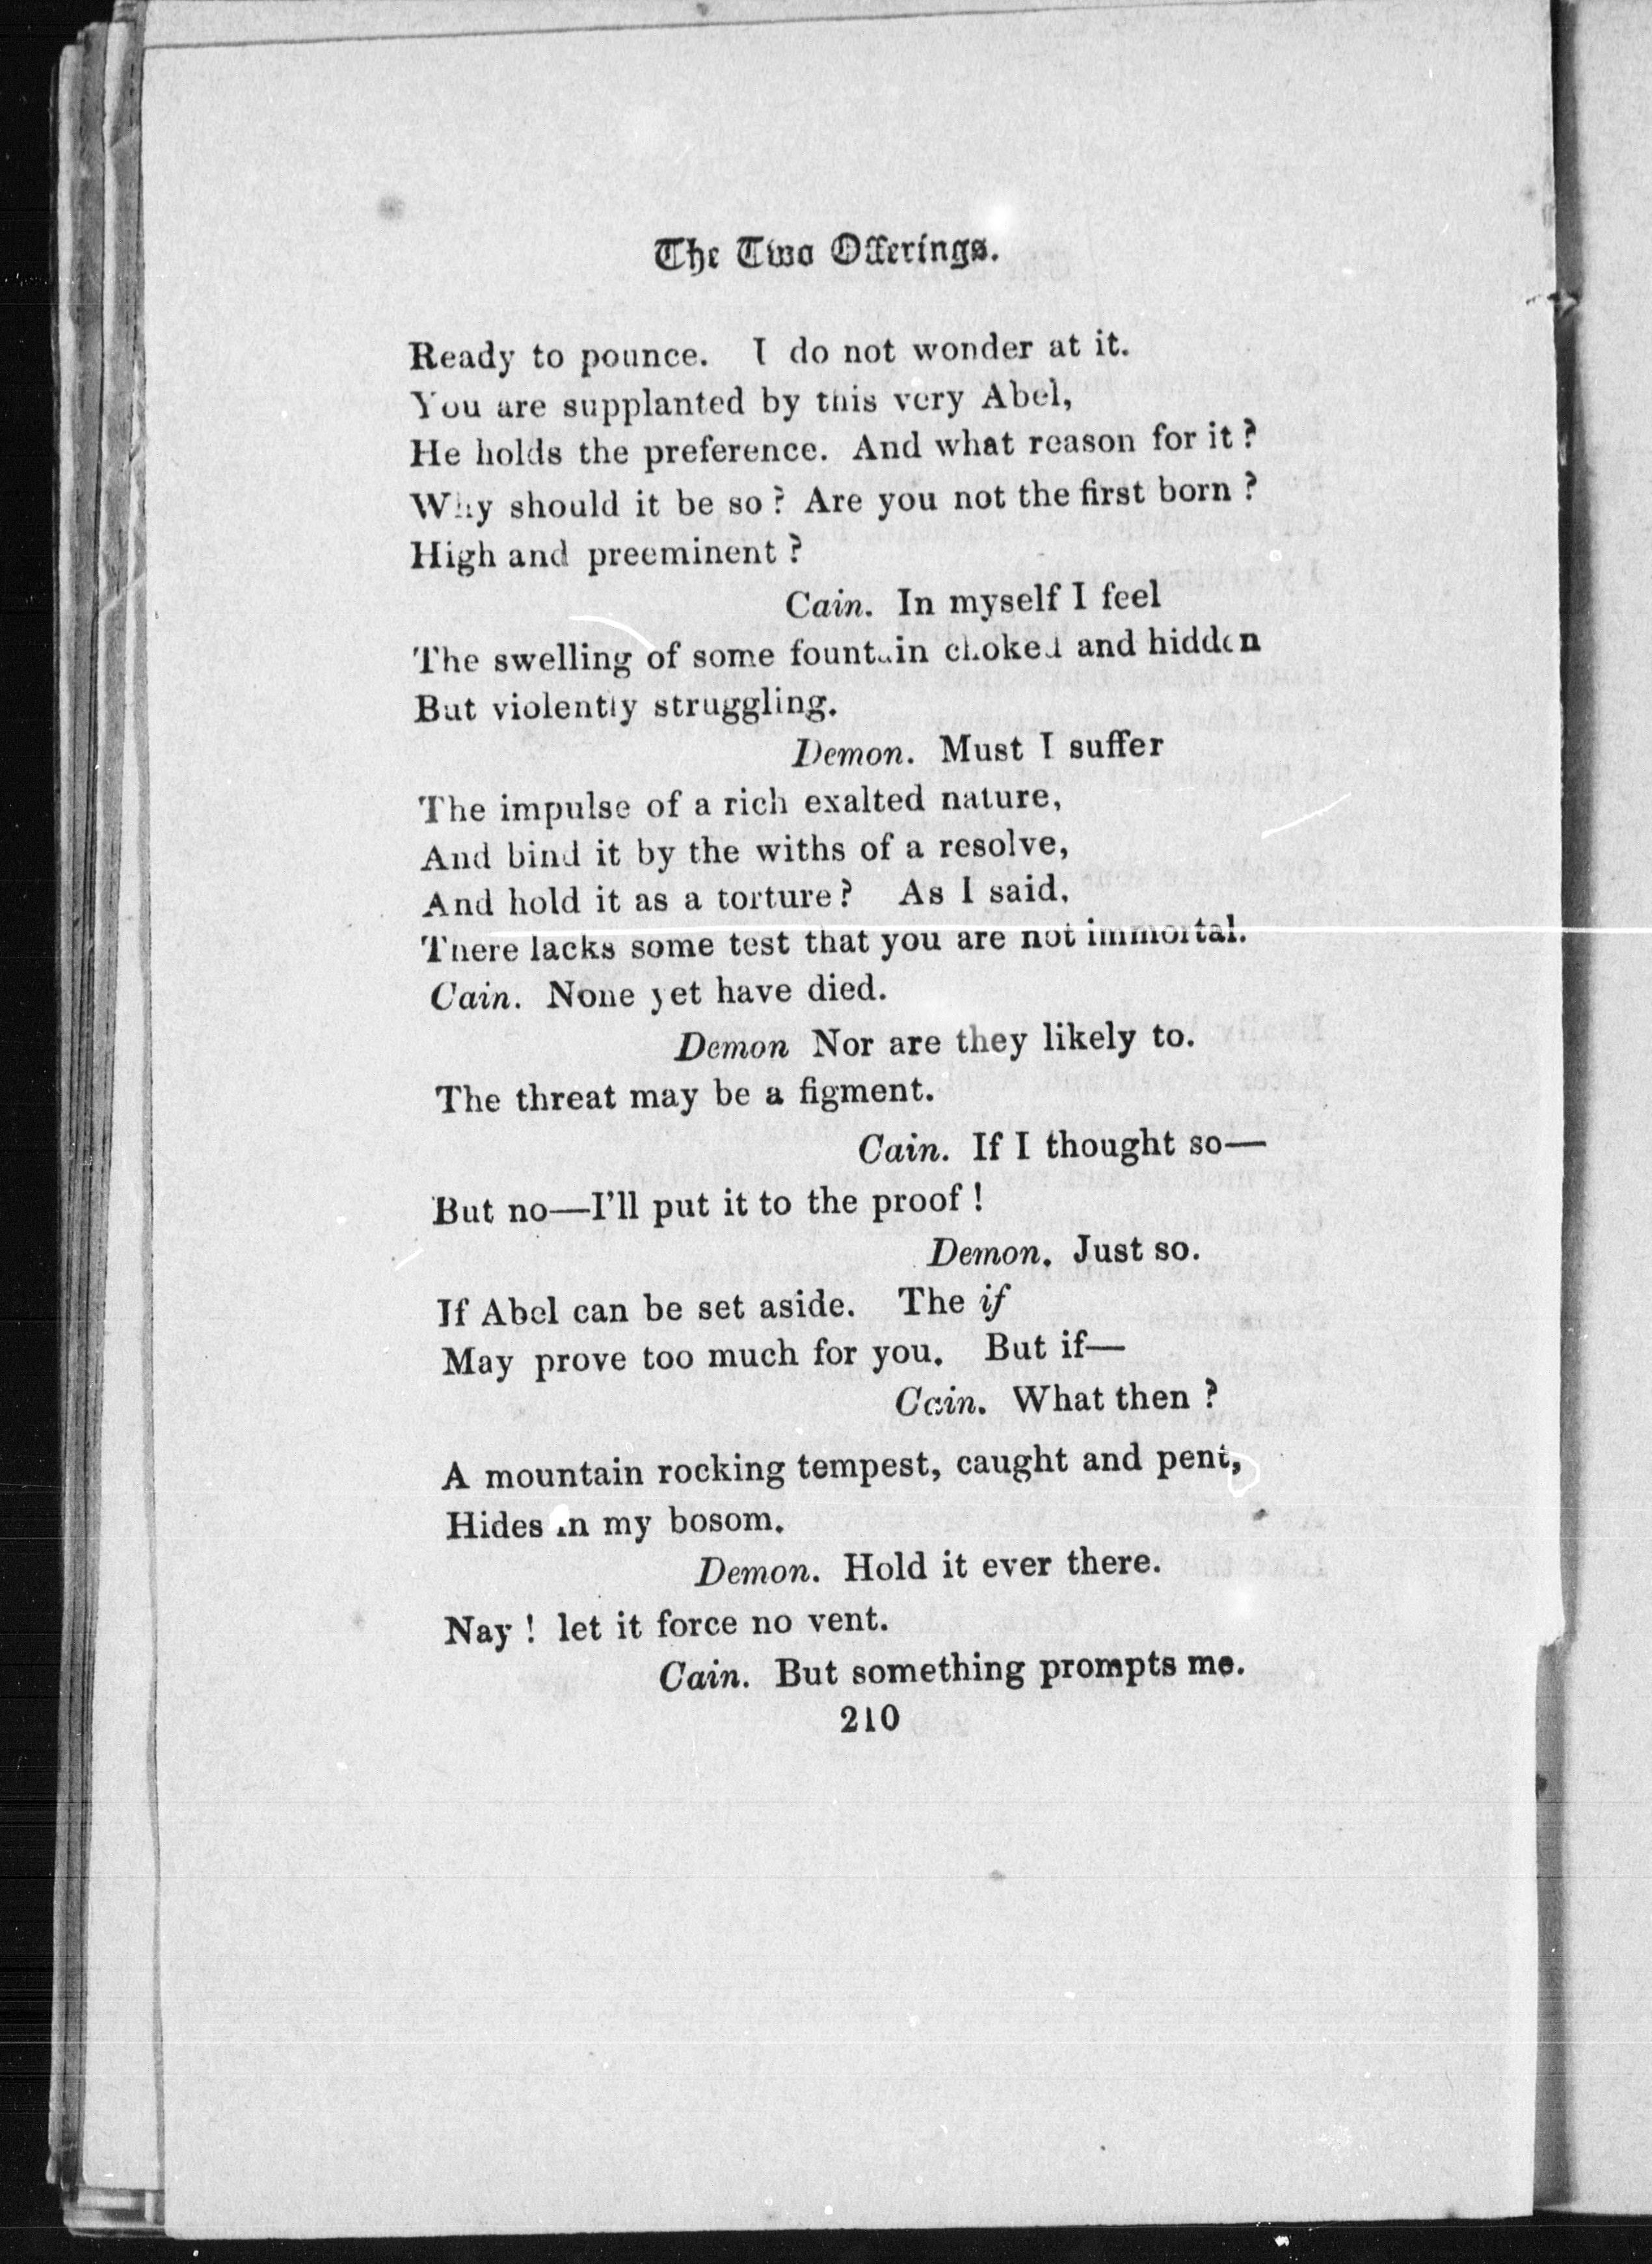 The Two Offerings.
Ready to pounce. I do not wonder at it.
You are supplanted by this very Abel,
He holds the preference. And what reason for it?
Why should it be so? Are you not the first born?
High and preeminent?
Cain. In myself I feel
The swelling of some fountain choked and hidden
But violently struggling.
Demon. Must I suffer
The impulse of a rich exalted nature,
And bind it by the withs of a resolve,
And hold it as a torture? As I said,
There lacks some test that you are not immortal.
Cain. None yet have died.
Demon Nor are they likely to.
The threat may be a figment.
Cain. If I thought so—
But no—I'll put it to the proof!
Demon. Just so.
If Abel can be set aside. The if
May prove too much for you. But if—
Cain. What then?
A mountain rocking tempest, caught and pent,
Hides in my bosom.
Demon. Hold it ever there.
Nay! let it force no vent.
Cain. But something prompts me.
210